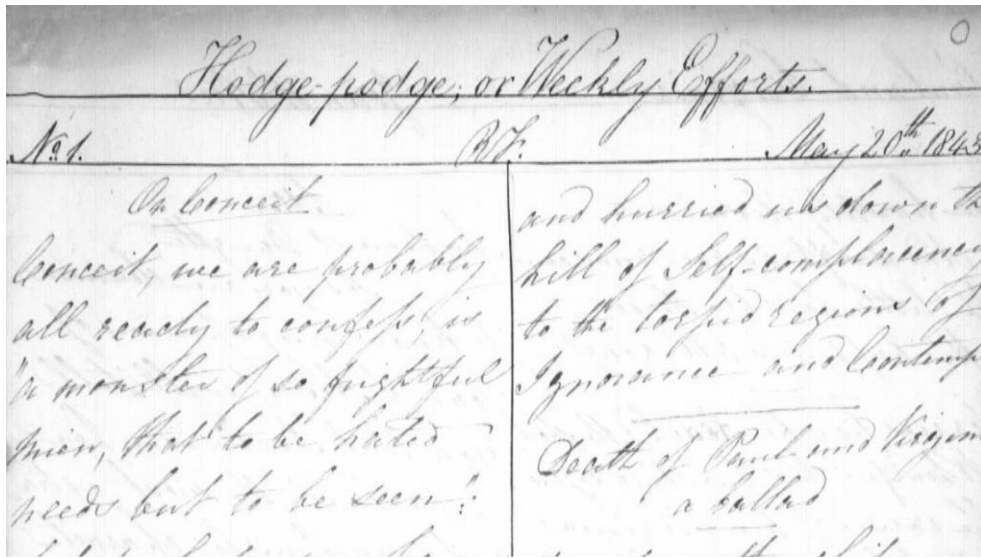 Hodge-podge; or Weekly Efforts.
No. 1.
May 20th 1843
On Conceit
Conceit, we are probably
all ready to confess, is
"a monster of so frightful
mien, that to be hated
needs but to be seen":
and hurried us down th
hill of Self-complacency
to the torpid regions of
Ignorance and Contemp
Death of Paul and Virgin
a ballad